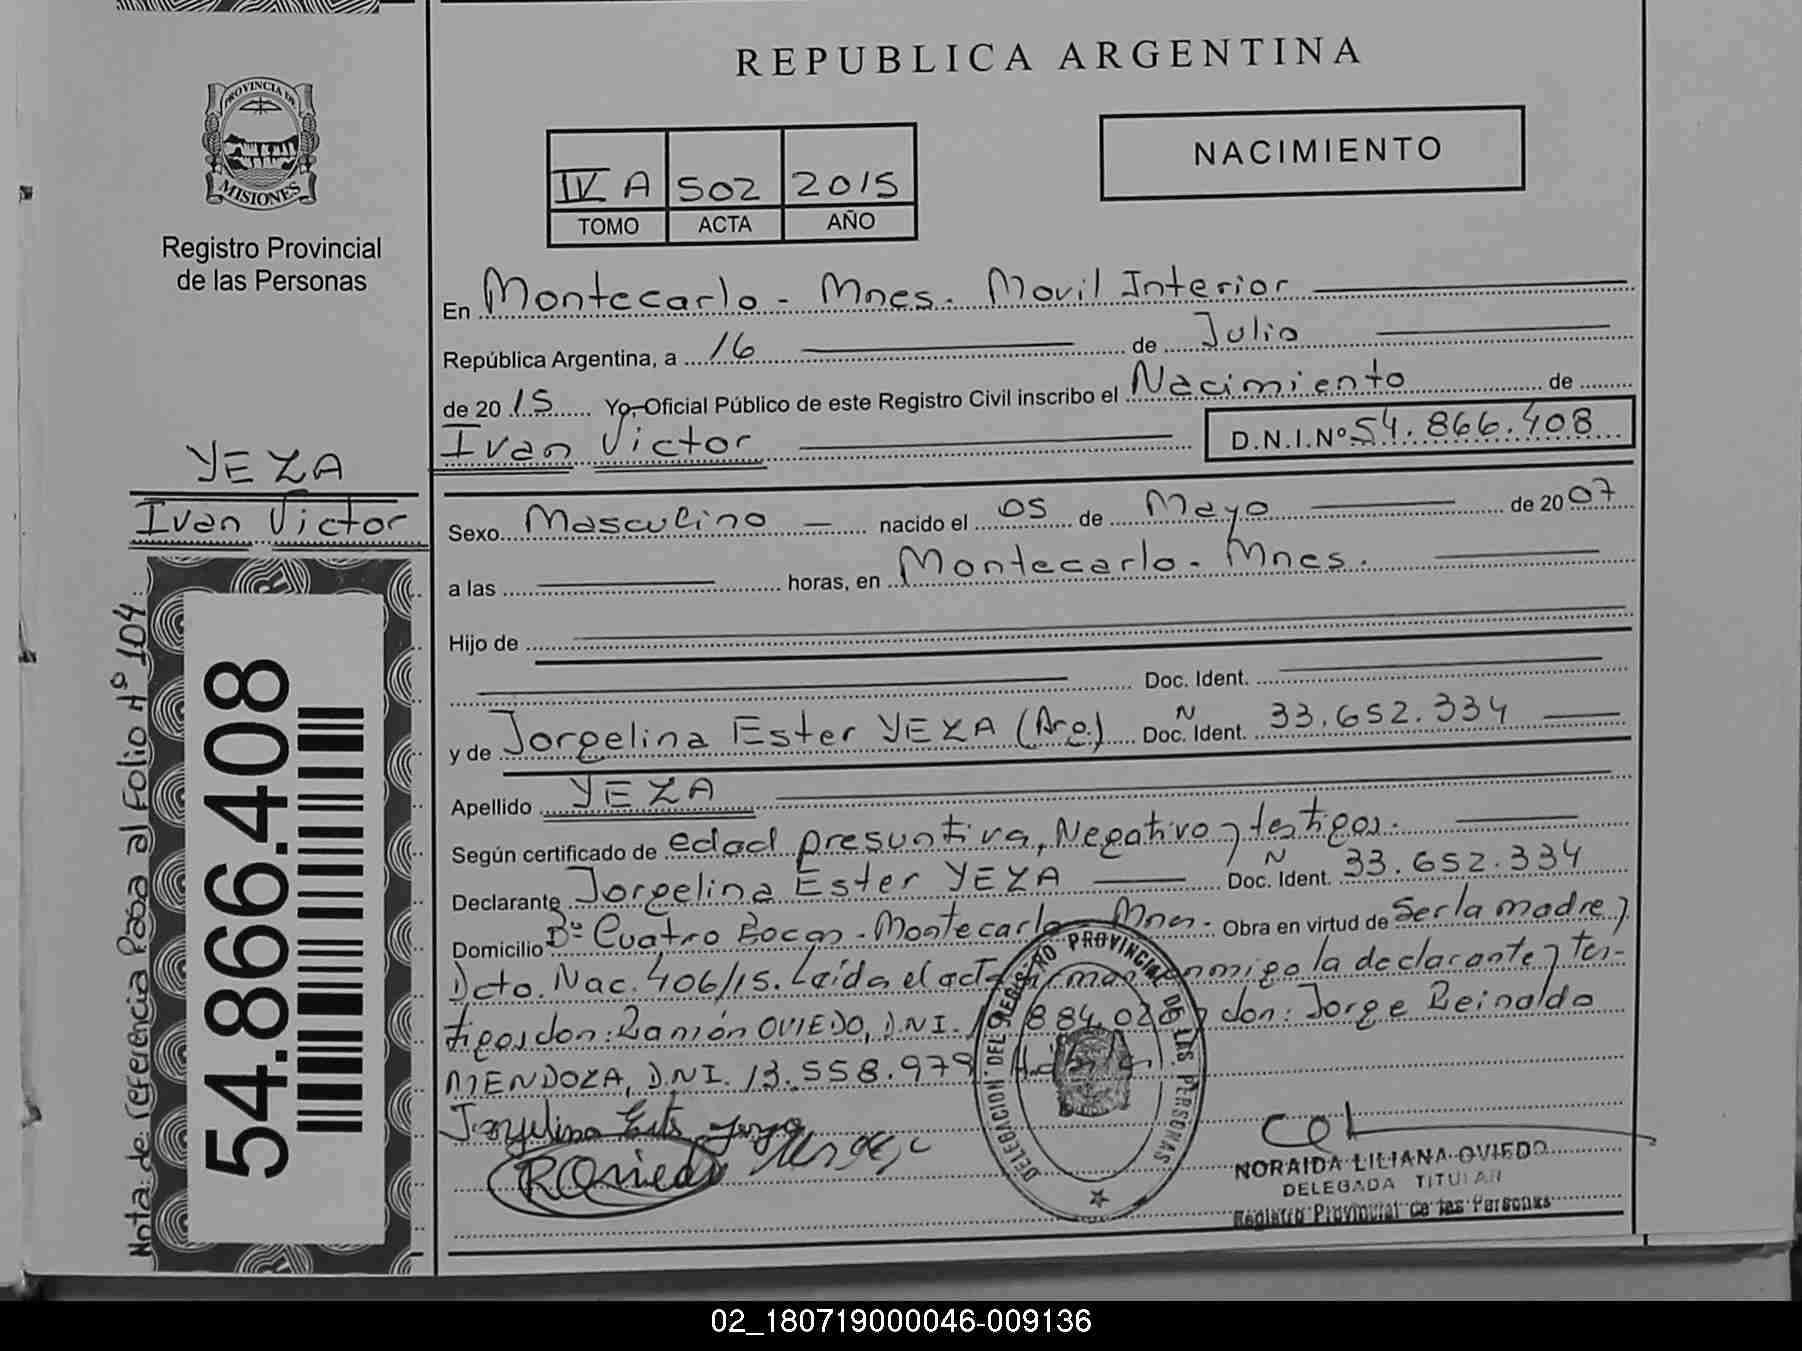 REPUBLICA ARGENTINA
PROVINCIA DE
MISIONES
Registro Provincial
de las Personas
NACIMIENTO
IV A 502 2015
TOMO ACTA AÑO
En Montecarlo - Mnes. Movil Interior
República Argentina, a 16 de Julio
de 2015 Yo, Oficial Público de este Registro Civil inscribo el Nacimiento de
Ivan Victor D.N.I.Nº 54.866.408
YEZA
Ivan Victor
Sexo Masculino nacido el 05 de Mayo de 2007
a las horas, en Montecarlo - Mnes.
Hijo de
Doc. Ident.
y de Jorgelina Ester YEZA (Arg.) N Doc. Ident. 33.652.334
Apellido YEZA
Según certificado de edad presuntiva, Negativo y testigos.
Declarante Jorgelina Ester YEZA N Doc. Ident. 33.652.334
Domicilio Bº Cuatro Bocas - Montecarlo Mnes. Obra en virtud de Ser la madre y
Dcto. Nac. 406/15. Leída el acta firman conmigo la declarante y tes-
tigos don: Ramón OVIEDO, D.N.I. 884.028 y don: Jorge Reinaldo
MENDOZA, D.N.I. 13.558.979
54.866.408
Nota de referencia Pasa al Folio Nº 104.
Jorgelina Ester Yeza
R Oviedo
DELEGACION DEL REGISTRO PROVINCIAL DE LAS PERSONAS
NORAIDA LILIANA OVIEDO
DELEGADA TITULAR
Registro Provincial de las Personas
02_180719000046-009136